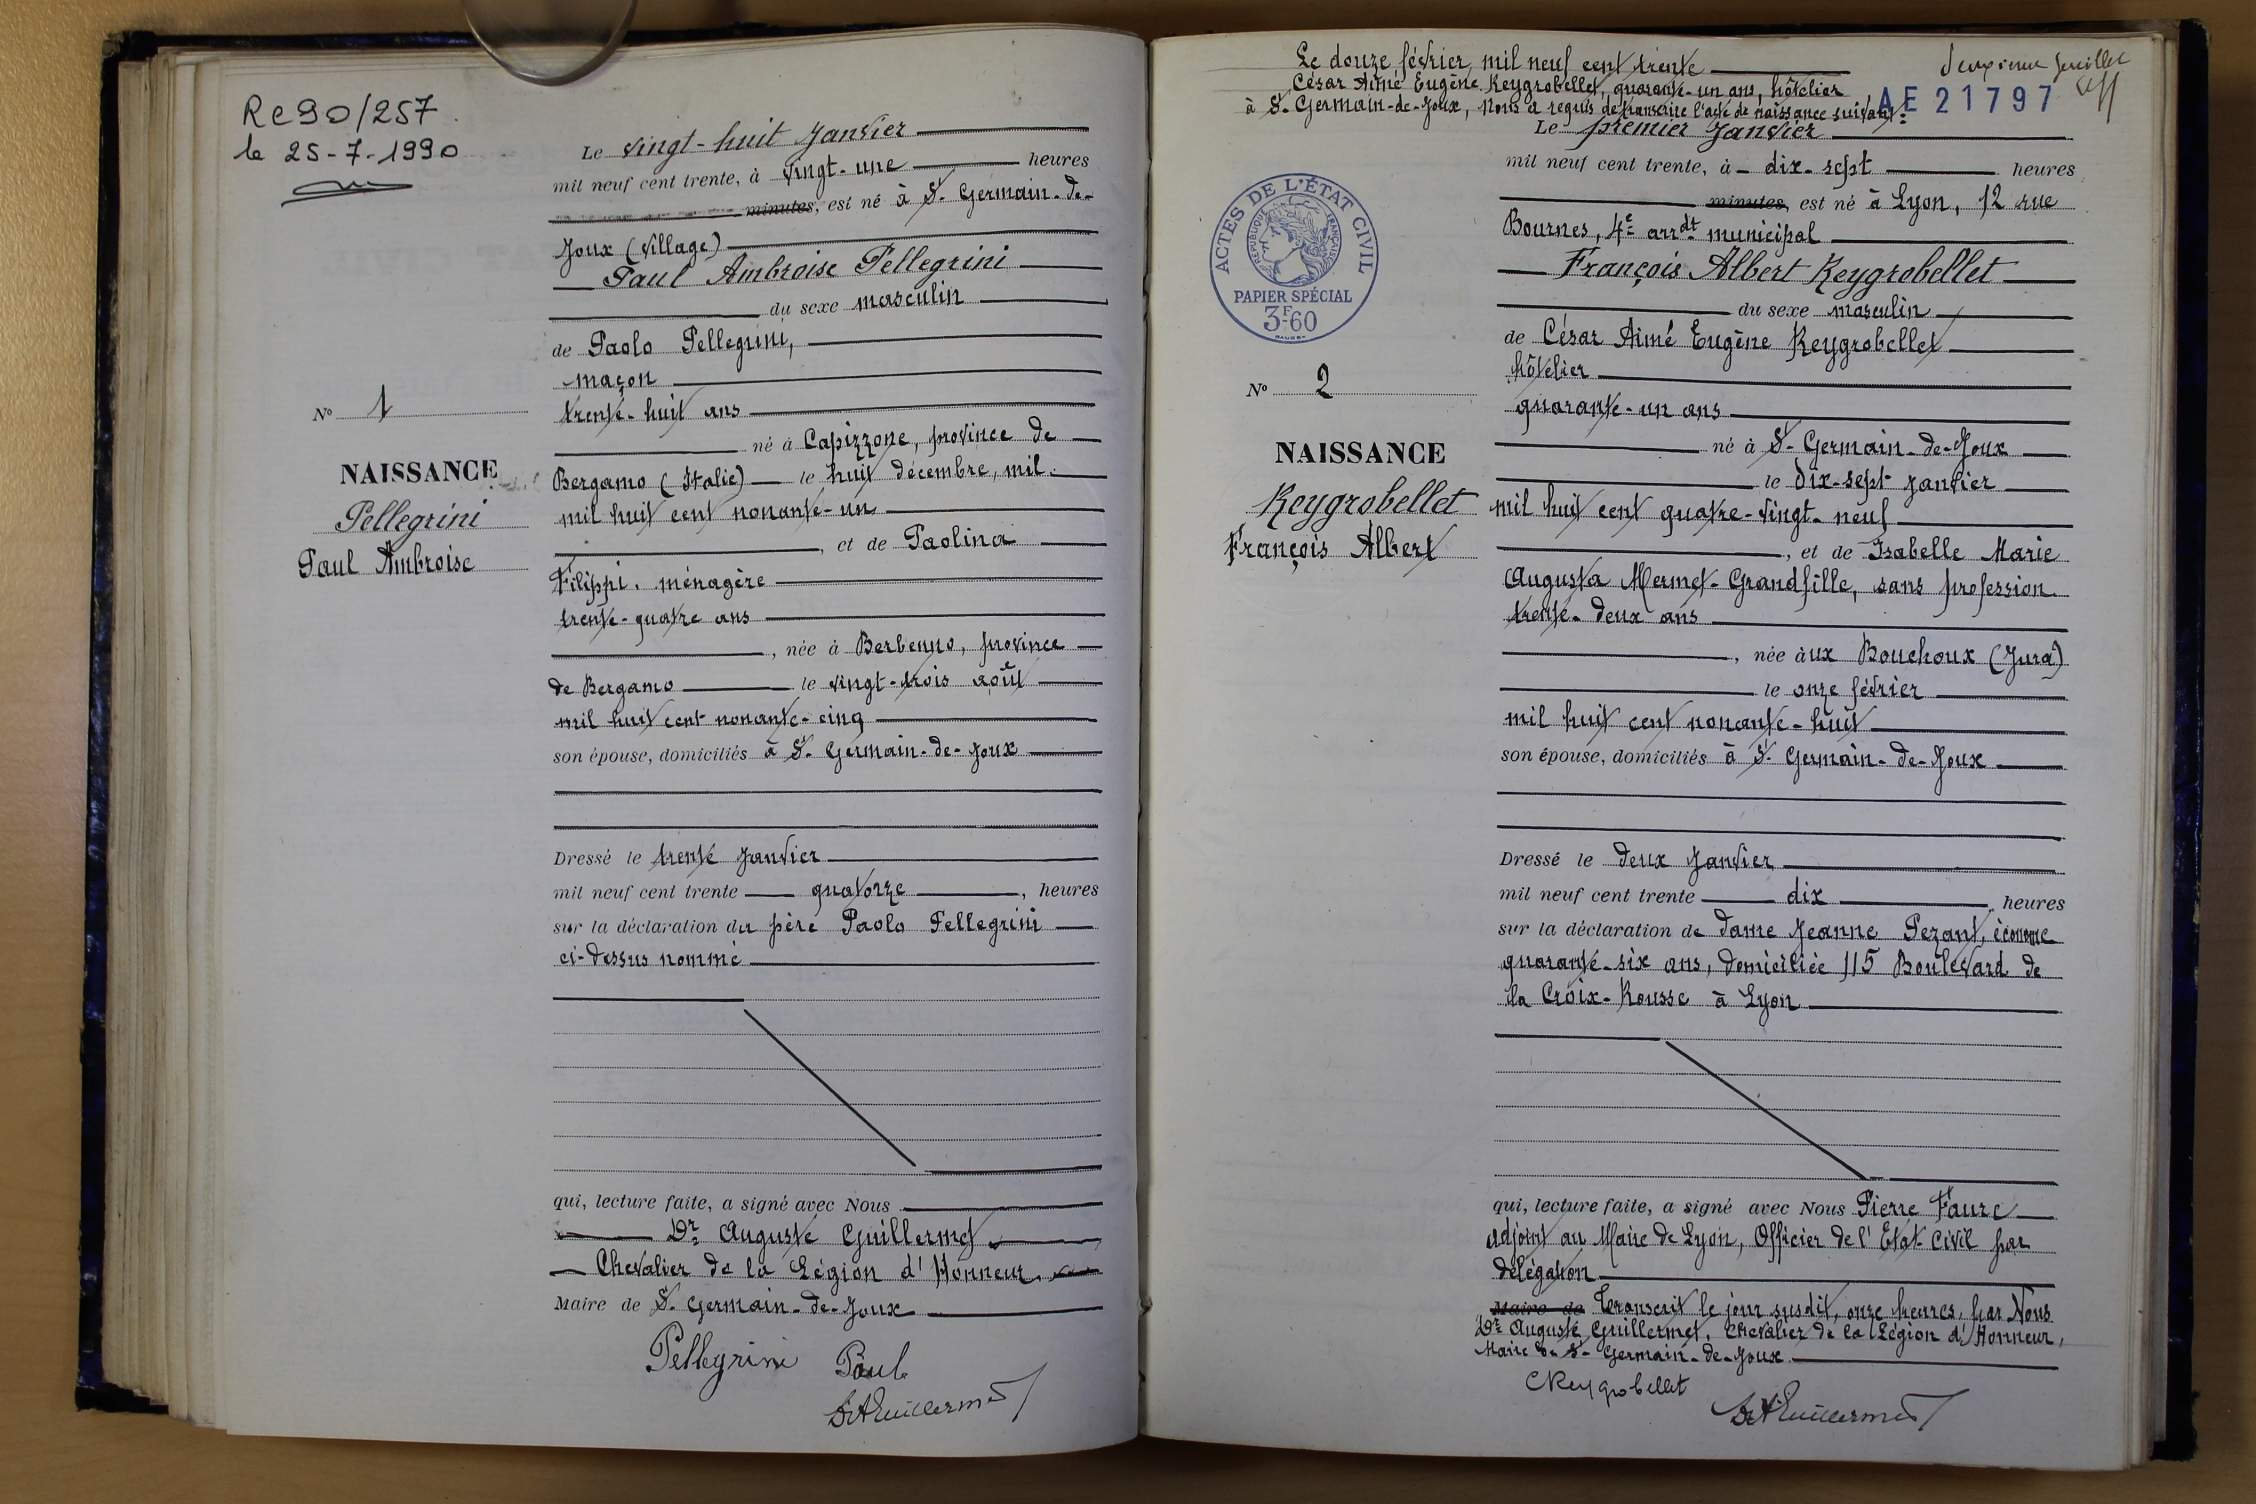 Re 90/257
le 25-7-1990
Le vingt-huit Janvier
mil neuf cent trente, à vingt-une heures
minutes, est né à St Germain-de-
Joux (village)
Paul Ambroise Pellegrini
du sexe masculin
de Paolo Pellegrini,
maçon
trente-huit ans
né à Capizzone, province de
Bergamo (Italie) le huit décembre, mil
mil huit cent nonante-un
, et de Paolina
Filippi, ménagère
trente-quatre ans
, née à Berbenno, province
de Bergamo le vingt-trois août
mil huit cent nonante-cinq
son épouse, domiciliés à St Germain-de-Joux
Dressé le trente Janvier
mil neuf cent trente quatorze, heures
sur la déclaration du père Paolo Pellegrini
ci-dessus nommé
qui, lecture faite, a signé avec Nous
Dr Auguste Guillermet
Chevalier de la Légion d'Honneur
Maire de St Germain-de-Joux
Pellegrini Paul
DrAGuillermet
No 1
NAISSANCE
Pellegrini
Paul Ambroise
deuxième feuillet
Le douze février mil neuf cent trente
César Aimé Eugène Reygrobellet, quarante-un ans, hôtelier
à St Germain-de-Joux, Nous a requis de transcrire l'acte de naissance suivant:
AE 21797
Le premier Janvier
mil neuf cent trente, à dix-sept heures
minutes, est né à Lyon, 12 rue
Bournes, 4e arrdt municipal
François Albert Reygrobellet
du sexe masculin
de César Aimé Eugène Reygrobellet
hôtelier
quarante-un ans
né à St Germain-de-Joux
le dix-sept Janvier
mil huit cent quatre-vingt-neuf
, et de Isabelle Marie
Augusta Mermet-Grandfille, sans profession
trente-deux ans
, née àux Bouchoux (Jura)
le onze février
mil huit cent nonante-huit
son épouse, domiciliés à St Germain-de-Joux
Dressé le deux Janvier
mil neuf cent trente dix heures
sur la déclaration de Dame Jeanne Pezant, économe
quarante-six ans, domiciliée 115 Boulevard de
la Croix-Rousse à Lyon
qui, lecture faite, a signé avec Nous Pierre Faure
adjoint au Maire de Lyon, Officier de l'Etat Civil par
délégation
Maire de Transcrit le jour susdit, onze heures, par Nous
Dr Auguste Guillermet, Chevalier de la Légion d'Honneur,
Maire de St Germain-de-Joux
CReygrobellet
DrAGuillermet
ACTES DE L'ÉTAT CIVIL
RÉPUBLIQUE FRANÇAISE
PAPIER SPÉCIAL
3F60
No 2
NAISSANCE
Reygrobellet
François Albert